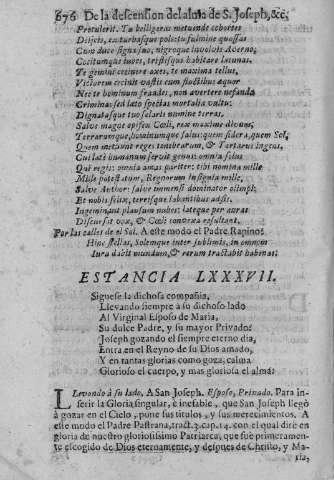 676 De la descension del alma de S. Joseph, &c.
Protulerit. Tu belligeras metuende cohortes
Deijcis, exturbasque polo, tu fulmine quassas
Cum duce signa suo, nigroque involvis Averno;
Cocitumque tuos, tristesque habitare lacunas.
Te gemini cecinere axes, te maxima tellus,
Victorem
Nec te hominum fraudes, non avertere nefanda
Crimina; sed lato spectas mortalia vultu;
Dignatasque tuo solaris numine terras.
Salve magne opifex Cœli, rex maxime divum;
Terrarumque, hominumque salus: quem sidera, quem Sol,
Quem metuunt reges tenebrarum, & Tartarus ingens,
Cui lati humanum servit genus: omnia solus
Qui regis: omnia amas pariter: tibi nomina mille
Mille potestatum, Regnorum insignia mille.
Salve Author: salve immensi dominator olimpi;
Et nobis felix, terrisque labentibus adsis.
Ingeminant plausum nubes: lateque per auras
Discursat vox, & Cœli convexa resultant.
Por las calles de el Sol. A este modo el Padre Rapino:
Hinc stellas, Solemque inter sublimis, in omnem
Iura dabit mundum, & rerum tractabit habenas:
ESTANCIA LXXXVII.
Siguese la dichosa compañia,
Llevando siempre a su dichoso lado
Al Virginal Esposo de Maria,
Su dulce Padre, y su mayor Privado:
Joseph gozando el siempre eterno dia,
Entra en el Reyno de su Dios amado,
Y en tantas glorias como goza, calma
Glorioso el cuerpo, y mas gloriosa el alma:
Levando à su lado. A San Joseph. Esposo, Privado. Para in-
serir la Gloria singular, è inefable, que San Joseph llegó
à gozar en el Cielo, pone sus titulos, y sus merecimientos. A
este modo el Padre Pastrana, tract. 3. cap. 14. con el qual dire en
gloria de nuestro gloriosissimo Patriarca, que fue primeramen-
te escogido de Dios eternamente, y despues de Christo, y Ma-
ria,